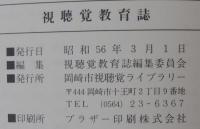 視聴覚教育誌
■発行日 昭和56年3月1日
■編集 視聴覚教育誌編集委員会
■発行所 岡崎市視聴覚ライブラリー
〒444 岡崎市十王町2丁目9番地
TEL (0564) 23-6367
■印刷所 ブラザー印刷株式会社